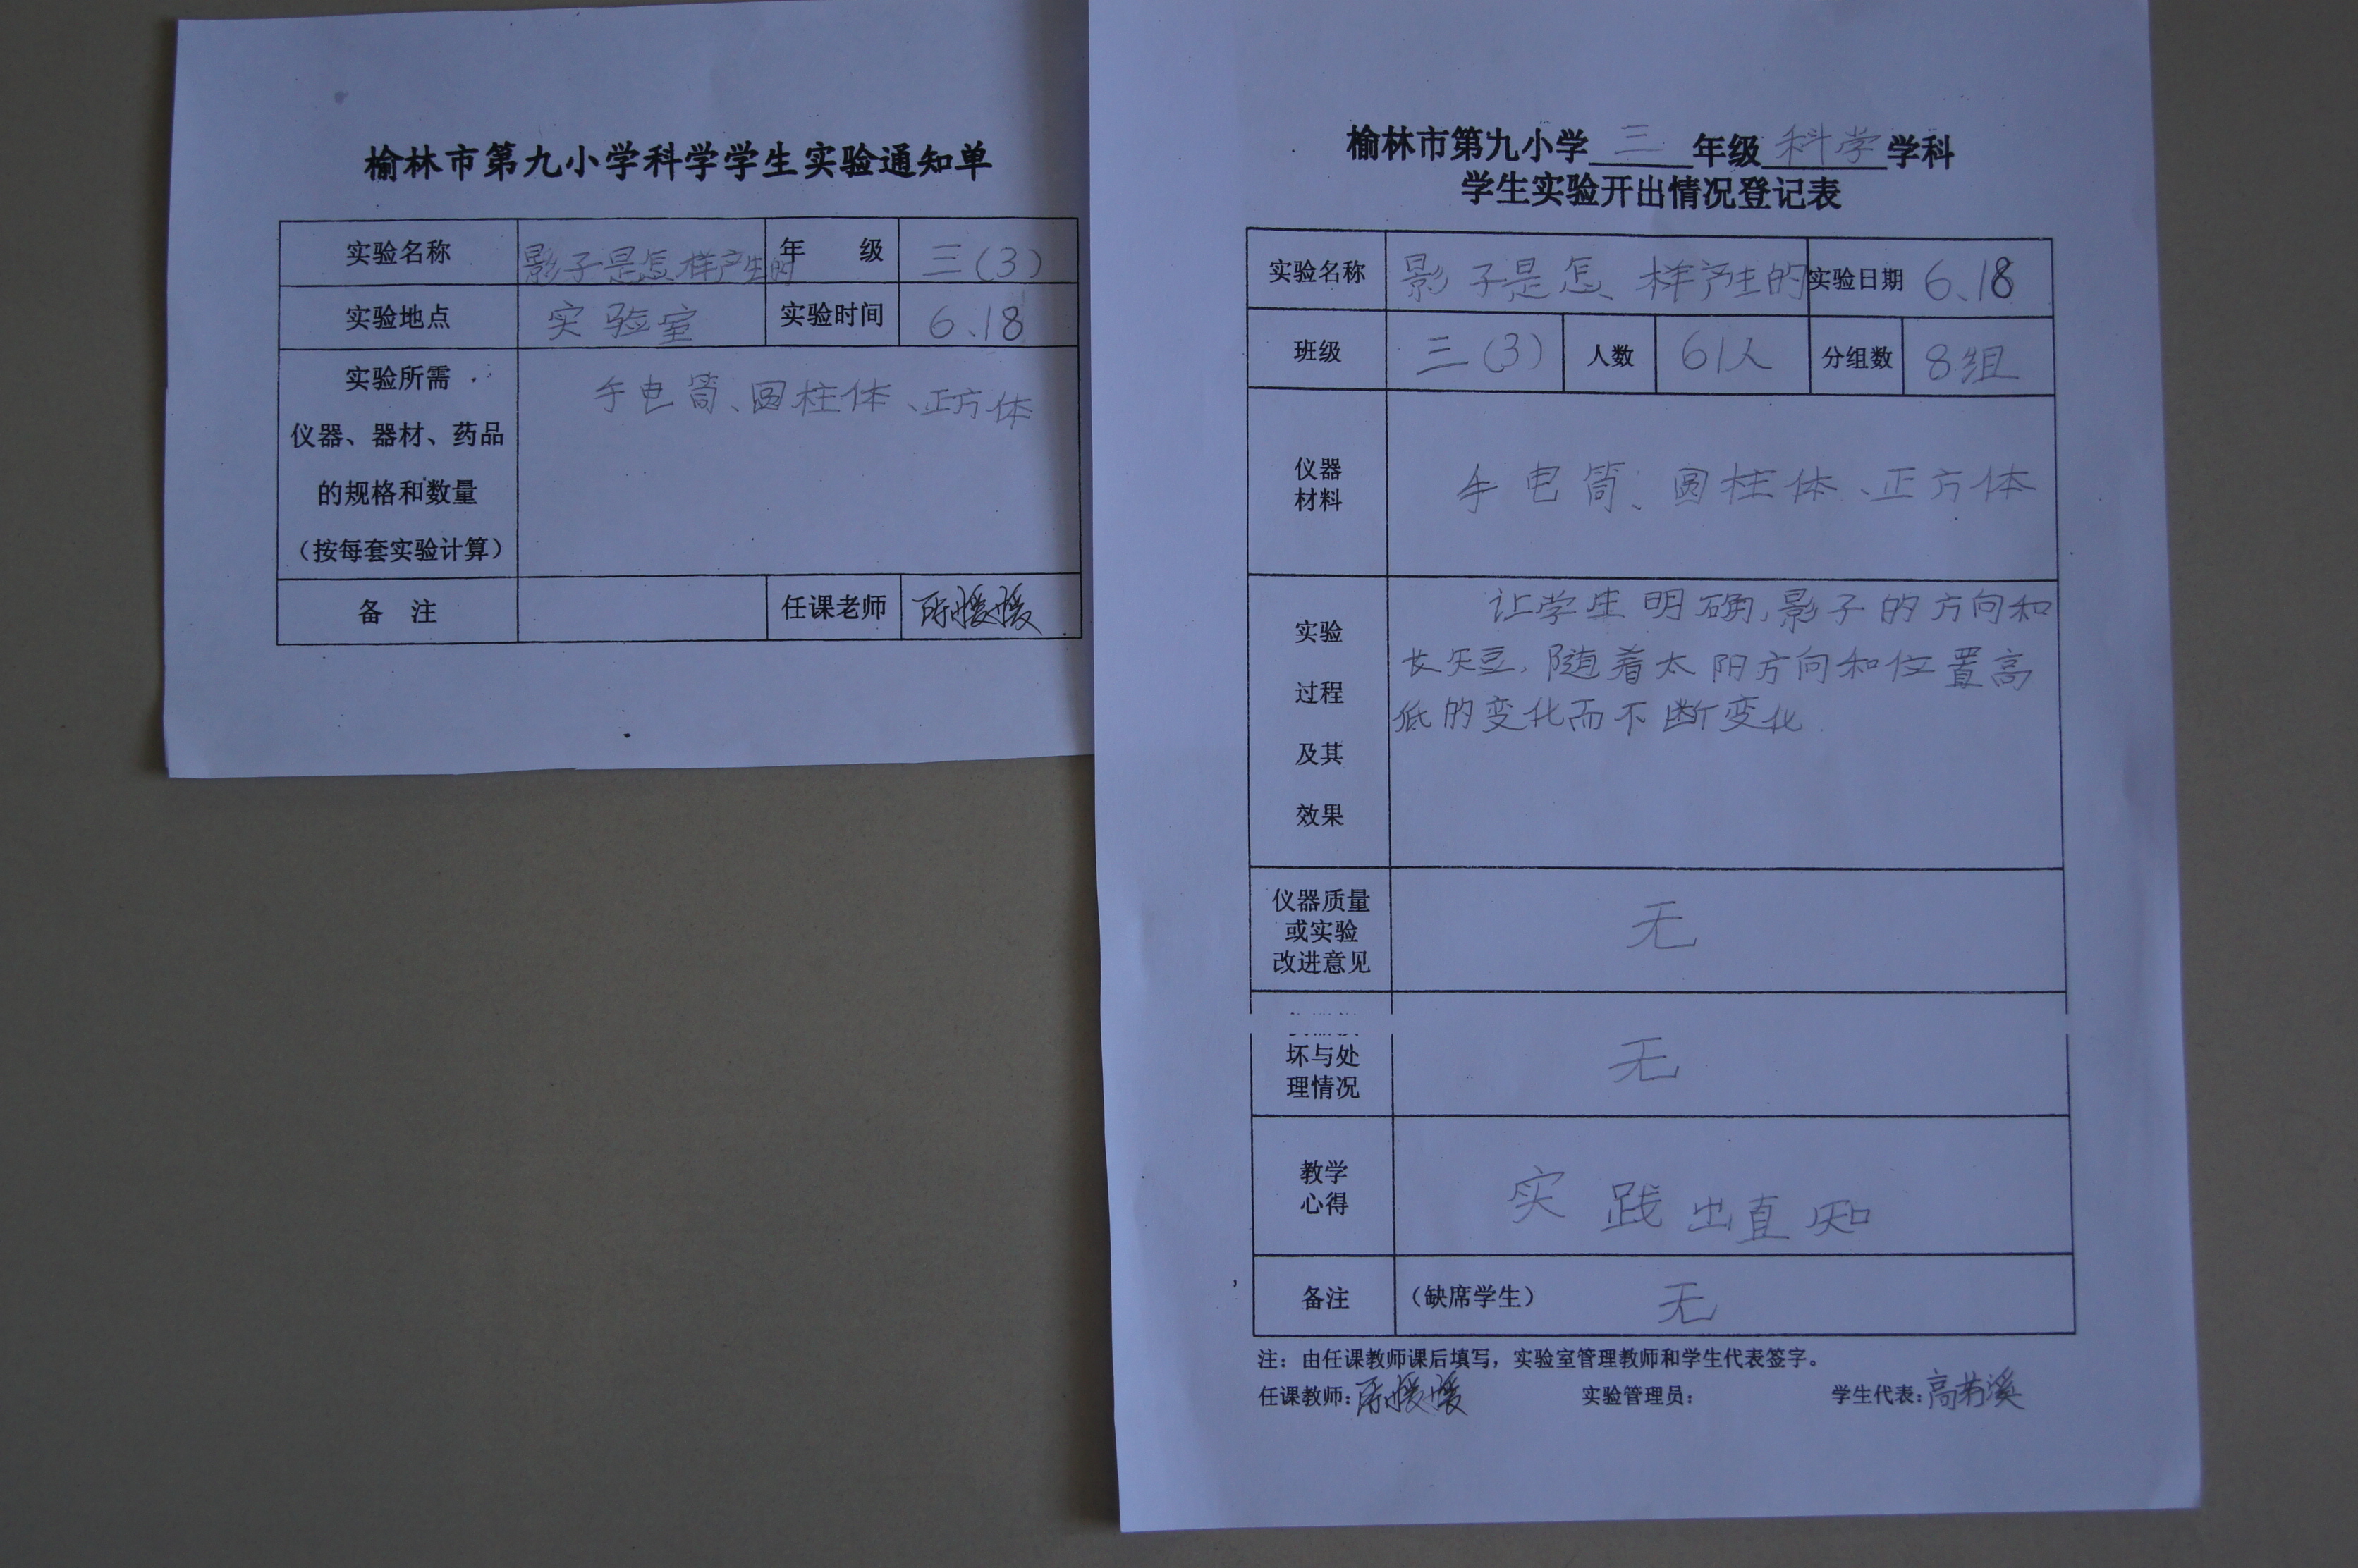 榆林市第九小学科学学生实验通知单
实验名称 影子是怎样产生的 年 级 三(3)
实验地点 实验室 实验时间 6.18
实验所需
仪器、器材、药品
的规格和数量
(按每套实验计算)
手电筒、圆柱体、正方体
备 注 任课老师 媛媛
榆林市第九小学 三 年级 科学 学科
学生实验开出情况登记表
实验名称 影子是怎样产生的 实验日期 6.18
班级 三(3) 人数 61人 分组数 8组
仪器
材料
手电筒、圆柱体、正方体
实验
过程
及其
效果
让学生明确,影子的方向和
长短,随着太阳方向和位置高
低的变化而不断变化.
仪器质量
或实验
改进意见
无
坏与处
理情况
无
教学
心得
实践出真知
备注 (缺席学生) 无
注:由任课教师课后填写,实验室管理教师和学生代表签字。
任课教师: 媛媛 实验管理员: 学生代表:高若溪